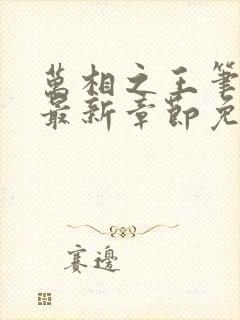 萬相之王筆
最新章節免
賽邊